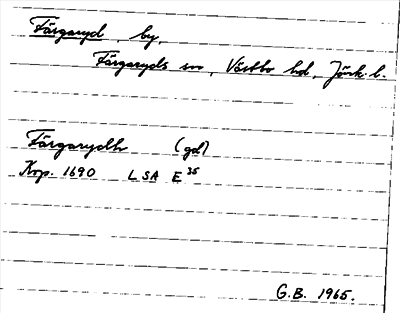 Färgaryd, by,
Färgaryds sn, Västbo hd, Jönk. l.
Färgarydh (gd)
Kop. 1690 LSA E 35
G.B. 1965.